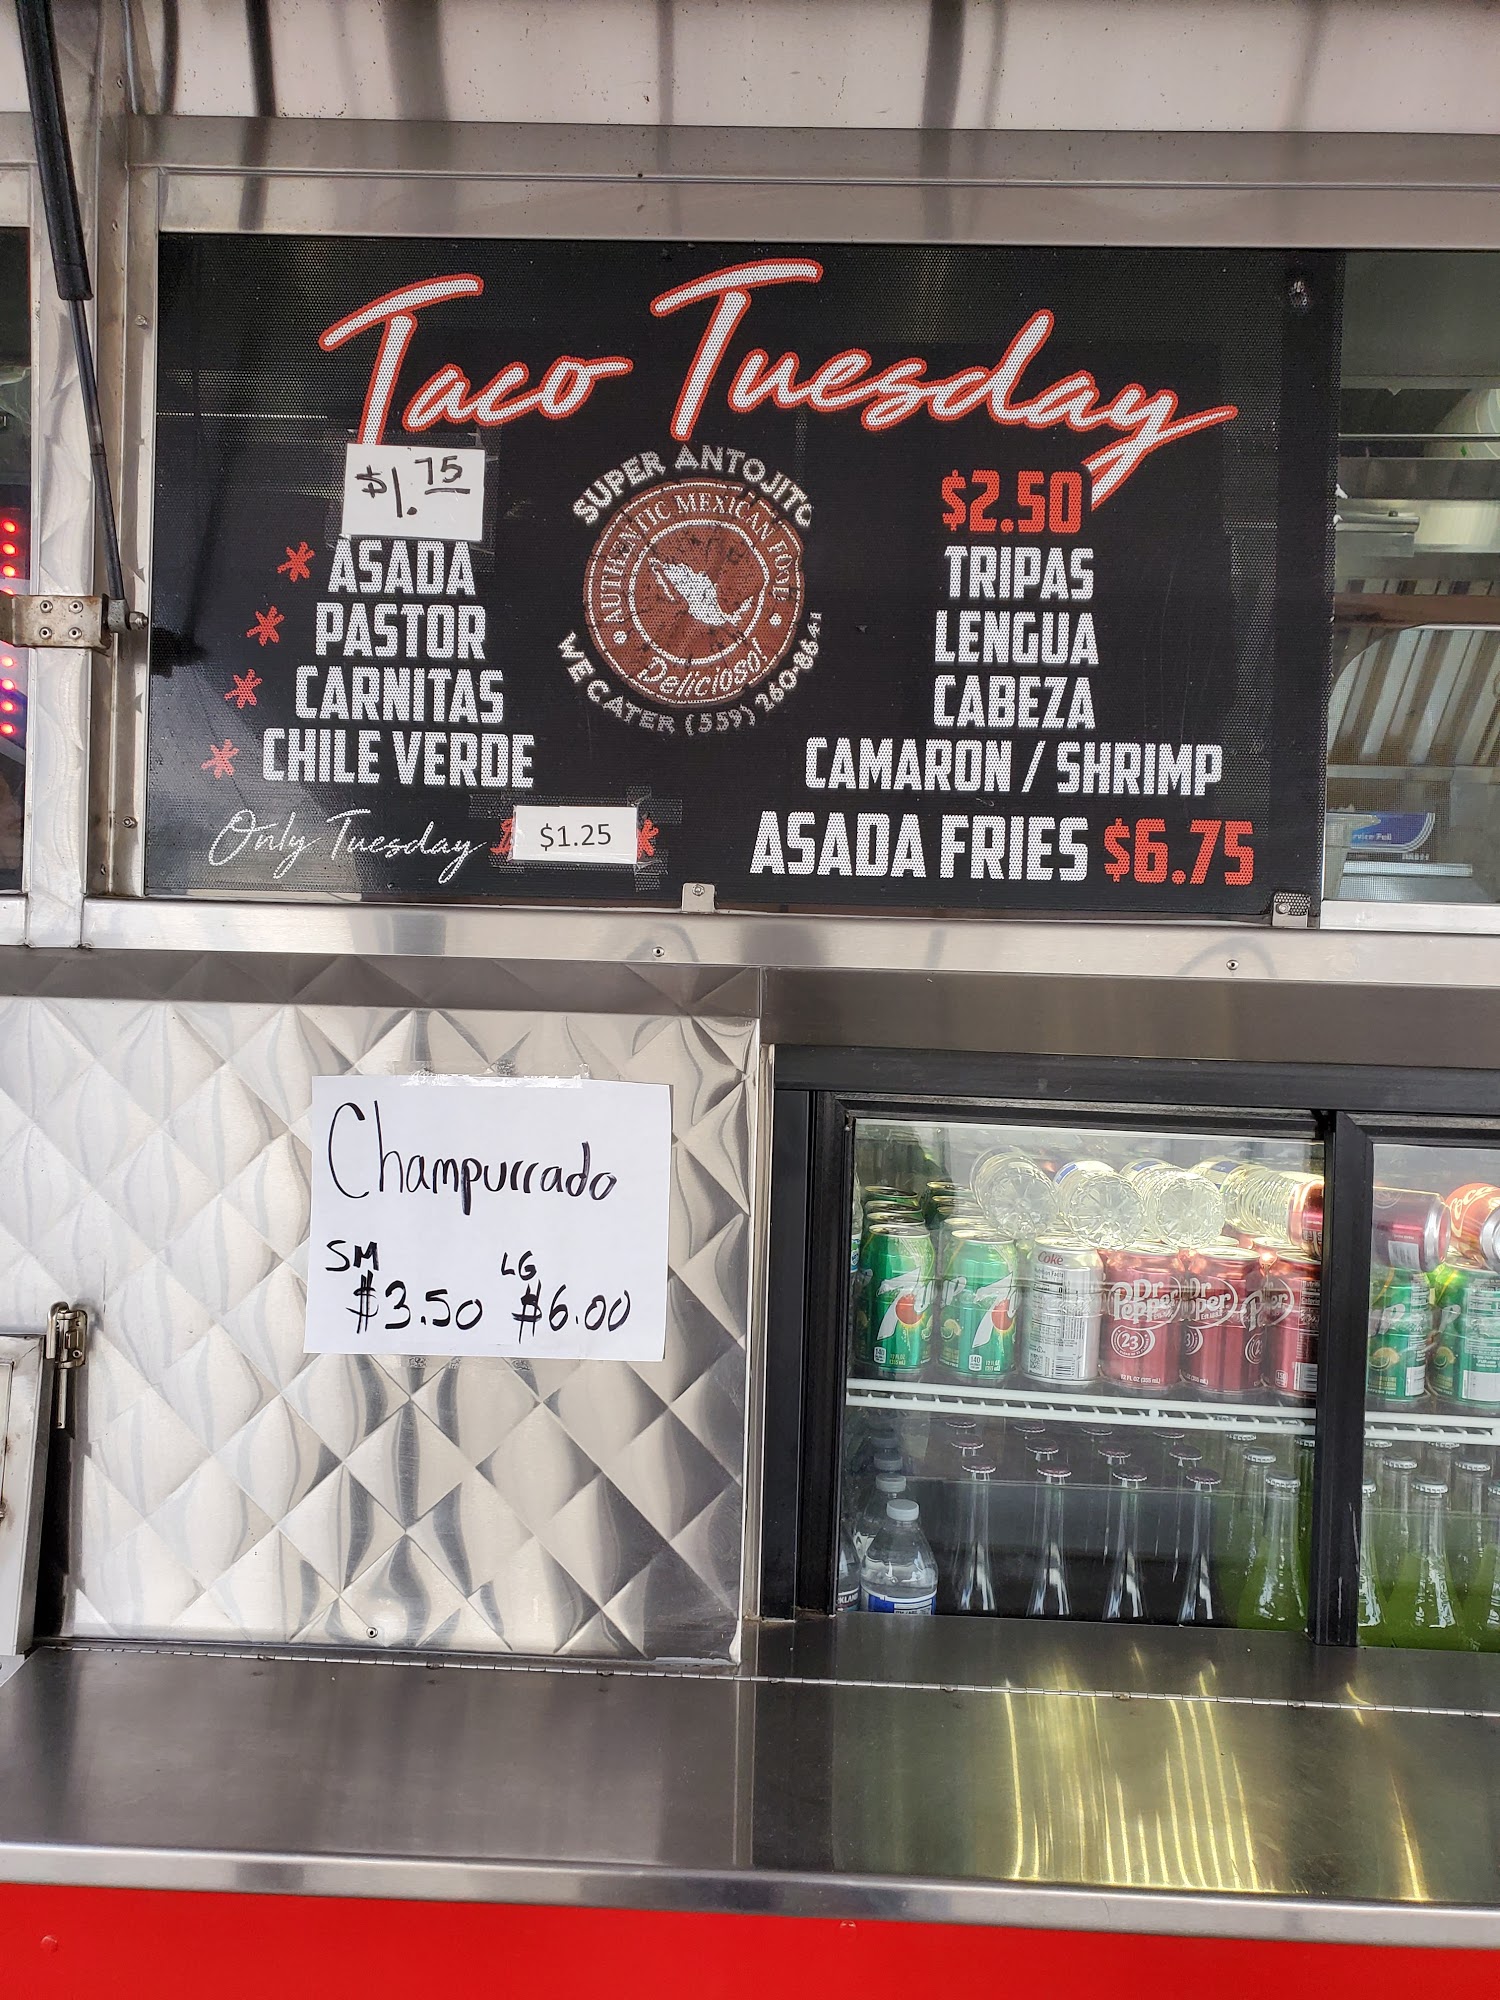 Taco Tuesday
$1.75
* ASADA
* PASTOR
* CARNITAS
* CHILE VERDE
Only Tuesday $1.25 *
SUPER ANTOJITO
AUTHENTIC MEXICAN FOOD
Delicioso!
WE CATER (559) 260-8641
$2.50
TRIPAS
LENGUA
CABEZA
CAMARON / SHRIMP
ASADA FRIES $6.75
Champurrado
SM LG
$3.50 $6.00
7up
Coke
Dr Pepper
23